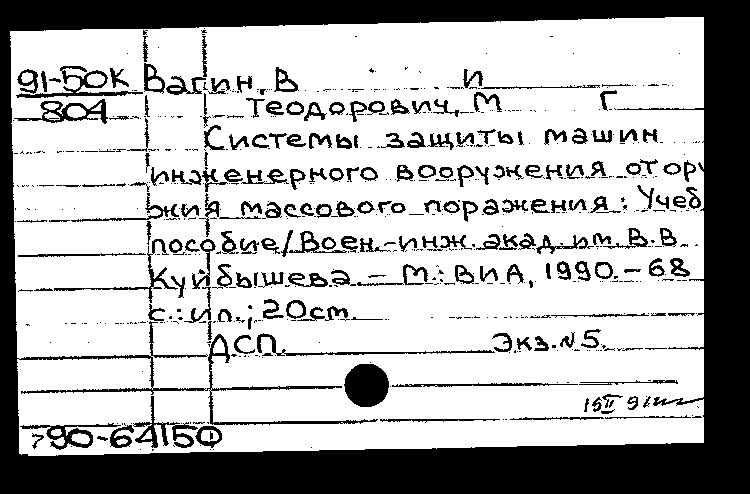 91-50К Вагин, В И
804 Теодорович, М Г
Системы защиты машин
инженерного вооружения от ору
жия массового поражения: Учеб
пособие/Воен.-инж. акад. им. В.В
Куйбышева. - М.: ВИА, 1990. - 68
с.: ил.; 20 см.
ДСП. Экз. № 5.
15 II 91
790-64150